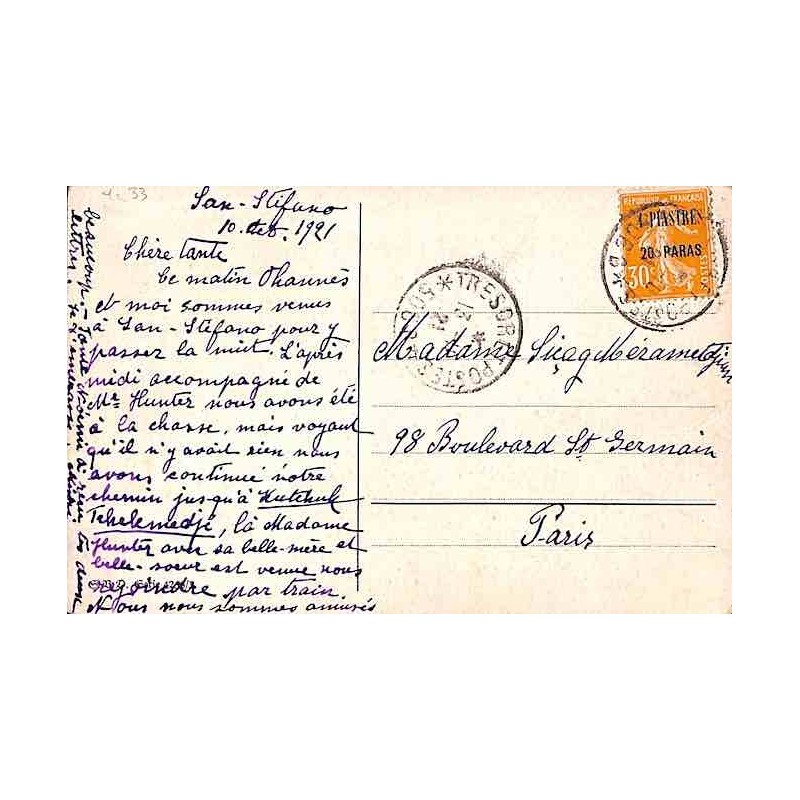 San-Stefano
10. Oct. 1921
Chère tante
Ce matin Ohannès
et moi sommes venus
à San-Stefano pour y
passer la nuit. L'après
midi accompagné de
Mr Hunter nous avons été
à la chasse, mais voyant
qu'il n'y avait rien nous
avons continué notre
chemin jusqu'à Kutchuk
Tchekmedjé, là Madame
Hunter avec sa belle-mère et
belle-soeur est venue nous
rejoindre par train.
Nous nous sommes amusés
beaucoup. Tante Noémi a reçu tes deux
lettres. Je t'embrasse
RÉPUBLIQUE FRANÇAISE
4 PIASTRES
20 PARAS
30c
POSTES
TRESOR ET POSTES
21
Madame Méramedjian
98 Boulevard St Germain
Paris